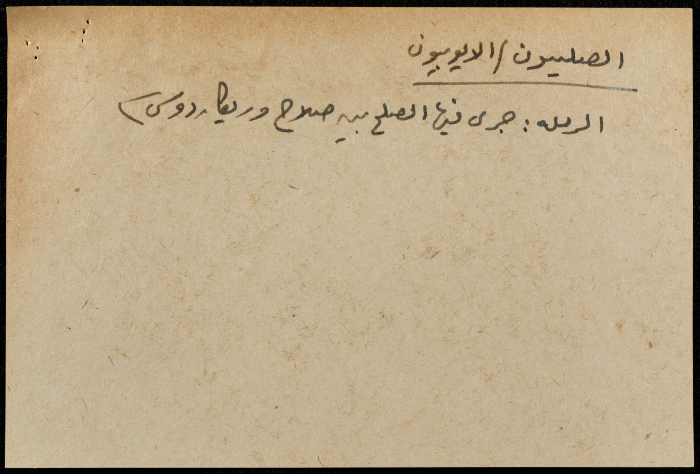 الصليبيون / الايوبيون
الرمله : جرى فيها الصلح بين صلاح وريكاردوس